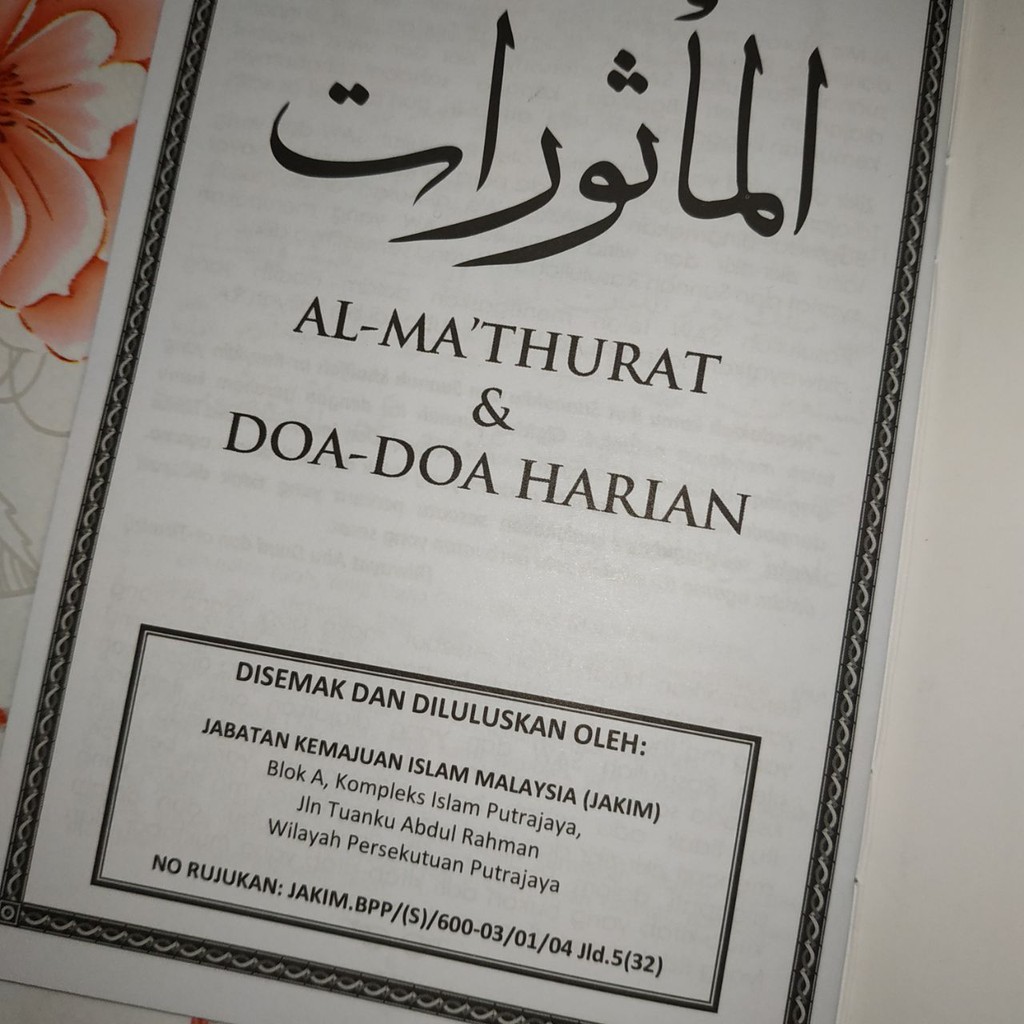 المأثورات
AL-MA'THURAT
&
DOA-DOA HARIAN
DISEMAK DAN DILULUSKAN OLEH:
JABATAN KEMAJUAN ISLAM MALAYSIA (JAKIM)
Blok A, Kompleks Islam Putrajaya,
Jln Tuanku Abdul Rahman
Wilayah Persekutuan Putrajaya
NO RUJUKAN: JAKIM.BPP/(S)/600-03/01/04 Jld.5(32)